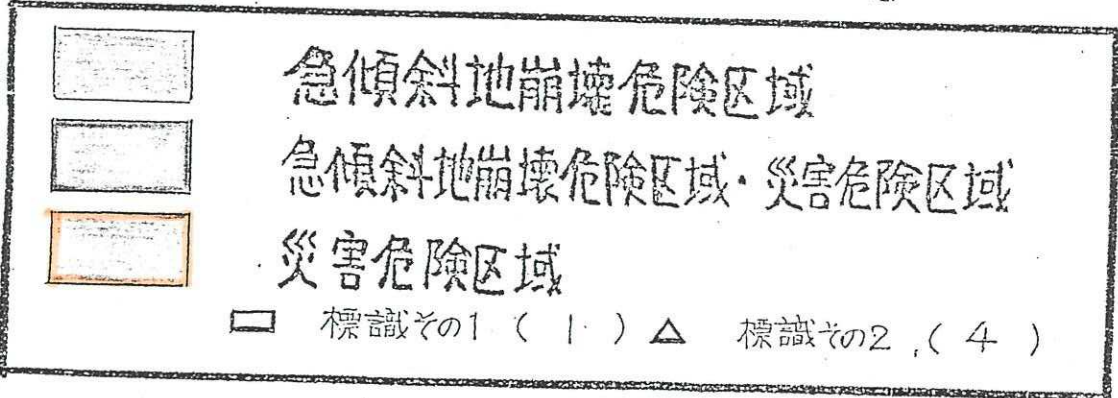 急傾斜地崩壊危険区域
急傾斜地崩壊危険区域・災害危険区域
災害危険区域
標識その1 ( 1 ) △ 標識その2 ( 4 )